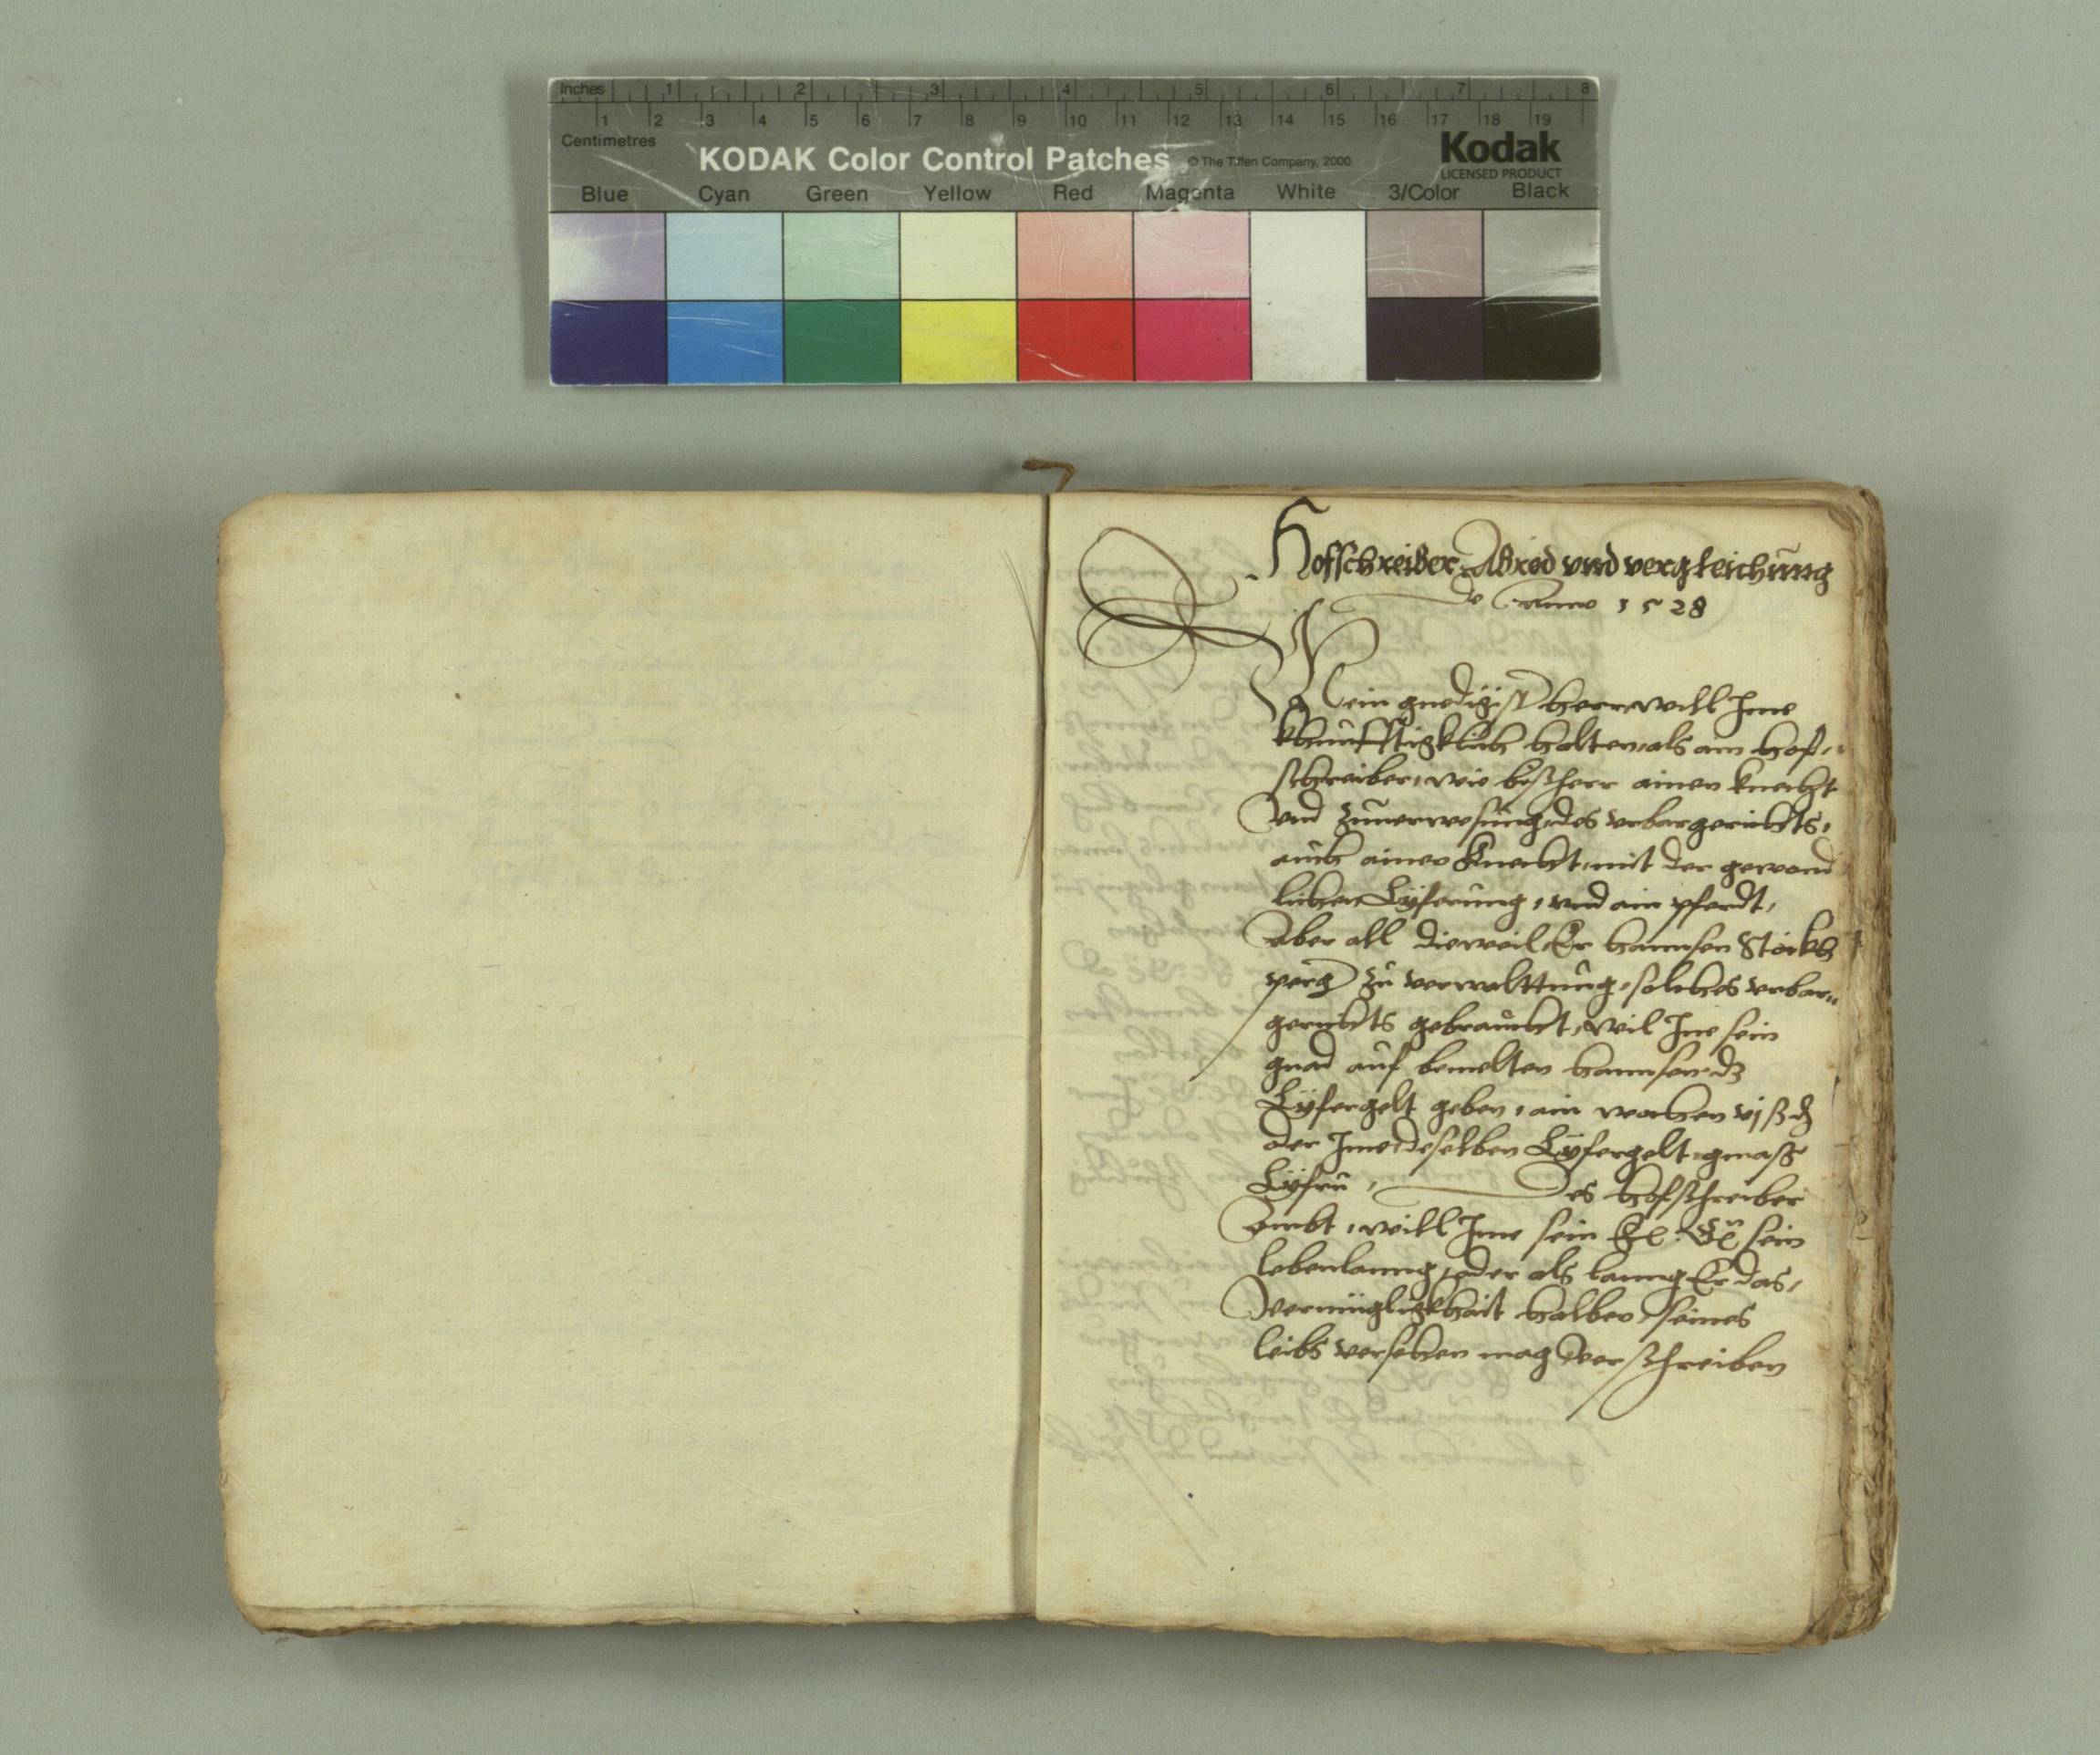 Inches 1 2 3 4 5 6 7 8
1 2 3 4 5 6 7 8 9 10 11 12 13 14 15 16 17 18 19
Centimetres
KODAK Color Control Patches © The Tiffen Company, 2000 Kodak
LICENSED PRODUCT
Blue Cyan Green Yellow Red Magenta White 3/Color Black
Hofschreiber Abred vnd vergleichung
de Anno 1528
Mein gnedigist herr will Ime
khunfftigklich halten, als am hof,
schreiber, wie bißheer ainen knecht
vnd zuuerwesung des vrbargerichts,
auch ainen knecht, mit der gewond
lichen Lyferung, vnd ain pferdt,
Aber all dieweil Er hannsen Störkh
perg zu verwalttung, solches vrbar„
gerichts gebraucht, wil Ime sein
gnad auf bemelten hannsen dz
Lyfergelt geben, ain wochen vj ß d
oder Ime deselben Lyfergelt gmaß
Lyfrn, Des hofschreiber
Ambt, will Ime sein sein
lebenlanng, oder als lanng Er das,
vermüglighait halben, seines
leibs versehen mag verschreiben